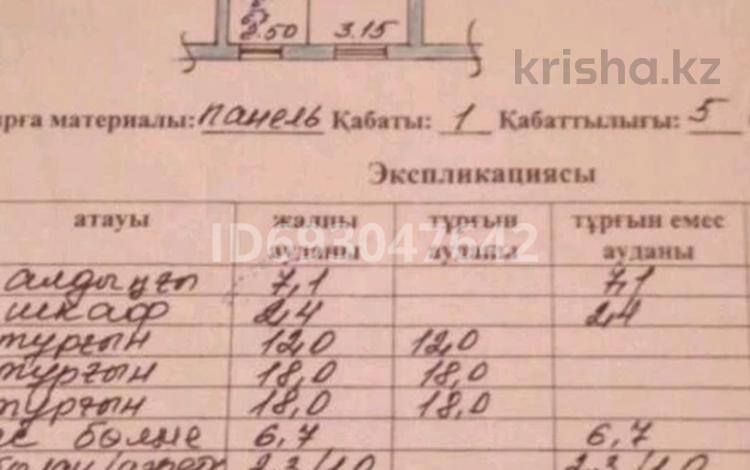 2.50 3.15
krisha.kz
материалы: панель Қабаты: 1 Қабаттылығы: 5
Экспликациясы
атауы жалпы ауданы тұрғын ауданы тұрғын емес ауданы
ID693047642
алдыңғы 7,1 7,1
шкаф 2,4 2,4
тұрғын 12,0 12,0
тұрғын 18,0 18,0
тұрғын 18,0 18,0
бөлме 6,7 6,7